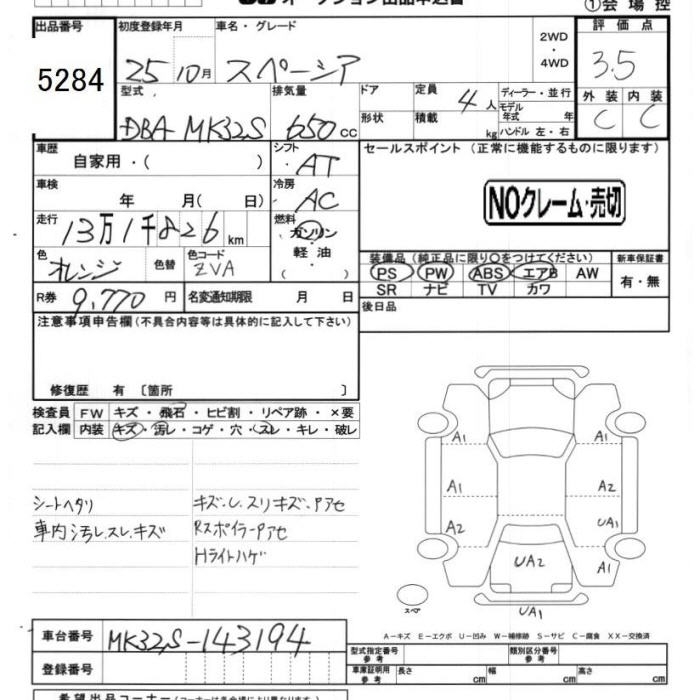 オークション出品申込書
①会場控
出品番号 初度登録年月 車名・グレード 評価点
5284 25 10月 スペーシア 2WD・4WD 3.5
型式 排気量 ドア 定員 ディーラー・並行 外装 内装
DBA MK32S 650 cc 形状 4人 積載 kg モデル年式 年 ハンドル 左・右 C C
車歴 シフト セールスポイント (正常に機能するものに限ります)
自家用・( ) AT
車検 冷房
年 月( 日) AC NOクレーム・売切
走行 燃料
13万1千826km ガソリン・軽油・( )
色 色替 色コード 装備品 (純正品に限り○をつけてください) 新車保証書
オレンジ ZVA PS PW ABS エアB AW 有・無
SR ナビ TV カワ
R券 9,770 円 名変通知期限 月 日 後日品
注意事項申告欄(不具合内容等は具体的に記入して下さい)
修復歴 有〔箇所 〕
検査員 FW キズ・飛石・ヒビ割・リペア跡・×要
記入欄 内装 キズ・汚レ・コゲ・穴・スレ・キレ・破レ
A1 A1
シートヘタリ キズ・U.スリキズ・Pアセ A1 A2
車内汚レ.スレ.キズ RスポイラーPアセ A2 UA1
Hライトハゲ UA2 A1
スペア UA1
A-キズ E-エクボ U-凹み W-補修跡 S-サビ C-腐食 XX-交換済
車台番号 MK32S-143194 型式指定番号 参考 類別区分番号 参考
登録番号 車庫証明用 参考 長さ cm 幅 cm 高さ cm
希望出品コーナー